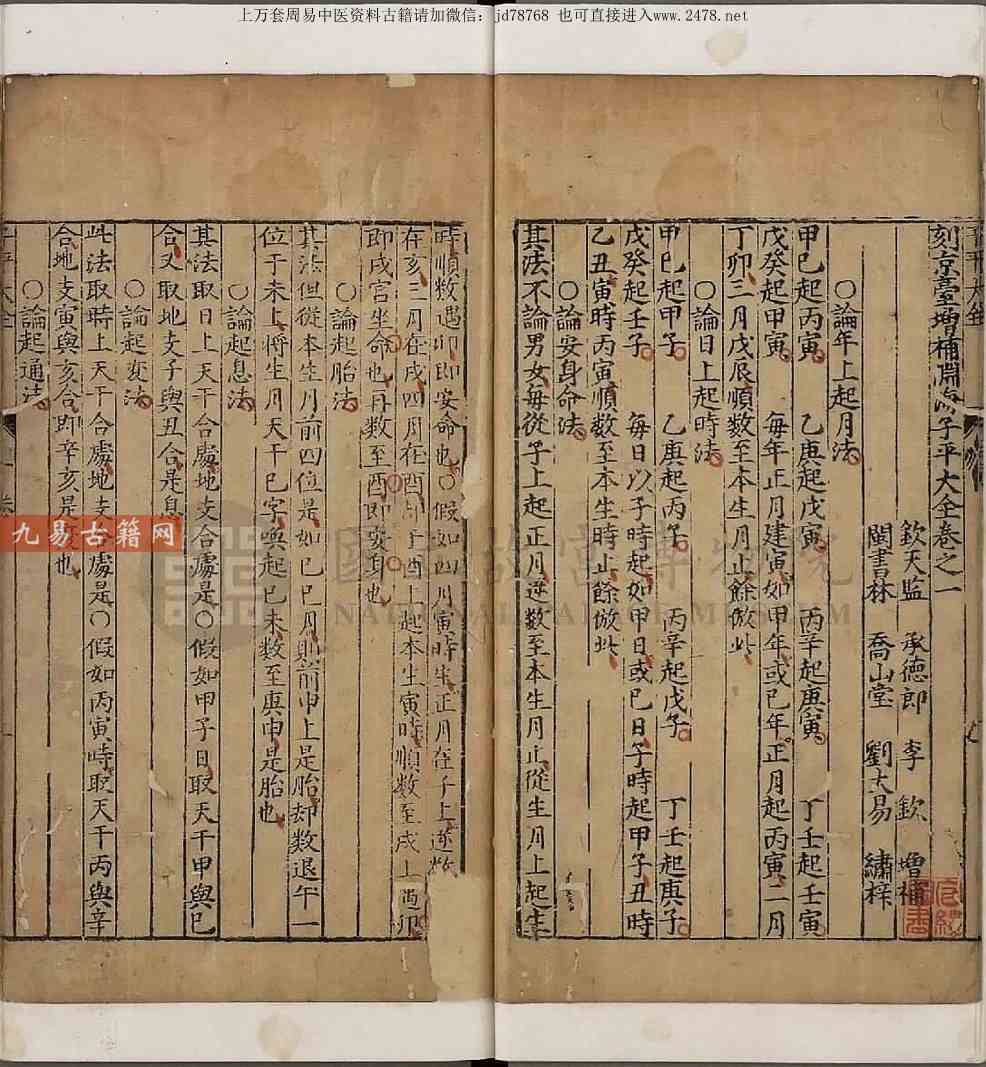 上万套周易中医资料古籍请加微信：jd78768 也可直接进入www.2478.net
刻京臺增補淵海子平大全卷之一
欽天監 承德郎 李欽 增補
閩書林 喬山堂 劉大易 繡梓
○論年上起月法
甲巳起丙寅 乙庚起戊寅 丙辛起庚寅 丁壬起壬寅
戊癸起甲寅 每年正月建寅如甲年或巳年正月起丙寅二月
丁卯三月戊辰順數至本生月止餘倣此
○論日上起時法
甲巳起甲子 乙庚起丙子 丙辛起戊子 丁壬起庚子
戊癸起壬子 每日以子時起如甲日或巳日子時起甲子丑時
乙丑寅時丙寅順數至本生時止餘倣此
○論安身命法
其法不論男女每從子上起正月逆数至本生月止從生月上起生
時順数遇卯即安命也○假如四月寅時生正月在子上逆数
在亥三月在戌四月在酉即于酉上起本生寅時順數至戌上酉卯
即戌宮坐命也再数至酉即安身也
○論起胎法
其法但從本生月前四位是如巳巳月則前申上是胎却数退午一
位于未上將生月天干巳字喚起巳未数至庚申是胎也
○論起息法
其法取日上天干合處地支合處是○假如甲子日取天干甲與巳
合又取地支子與丑合是息
○論起变法
此法取時上天干合處地支合處是○假如丙寅時取天干丙與辛
合地支寅與亥合即辛亥是也
○論起通法
九易古籍网
NATIONAL PALACE MUSEUM